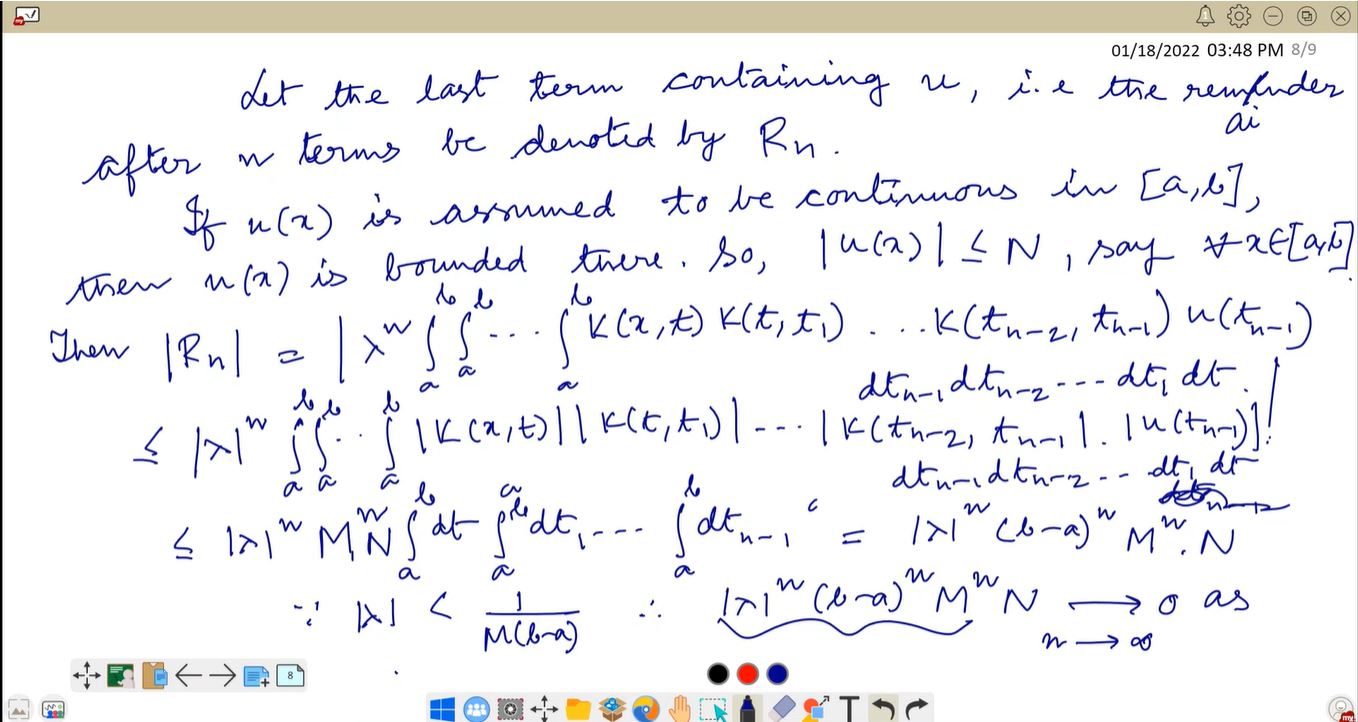 01/18/2022 03:48 PM 8/9
Let the last term containing u, i.e the remainder
after n terms be denoted by Rn.
If u(x) is assumed to be continuous in [a,b],
then u(x) is bounded there. So, |u(x)| ≤ N, say ∀ x∈[a,b].
Then |Rn| = |λ^n ∫_a^b ∫_a^b ... ∫_a^b K(x,t) K(t,t1) ... K(tn-2, tn-1) u(tn-1)
dtn-1 dtn-2 --- dt1 dt.|
≤ |λ|^n ∫_a^b ∫_a^b ... ∫_a^b |K(x,t)| |K(t,t1)| --- |K(tn-2, tn-1| . |u(tn-1)|
dtn-1 dtn-2 --- dt1 dt
≤ |λ|^n M^n N ∫_a^b dt ∫_a^b dt1 ---- ∫_a^b dtn-1 = |λ|^n (b-a)^n M^n . N
∵ |λ| < 1/M(b-a) ∴ |λ|^n (b-a)^n M^n N → 0 as
n → ∞
8